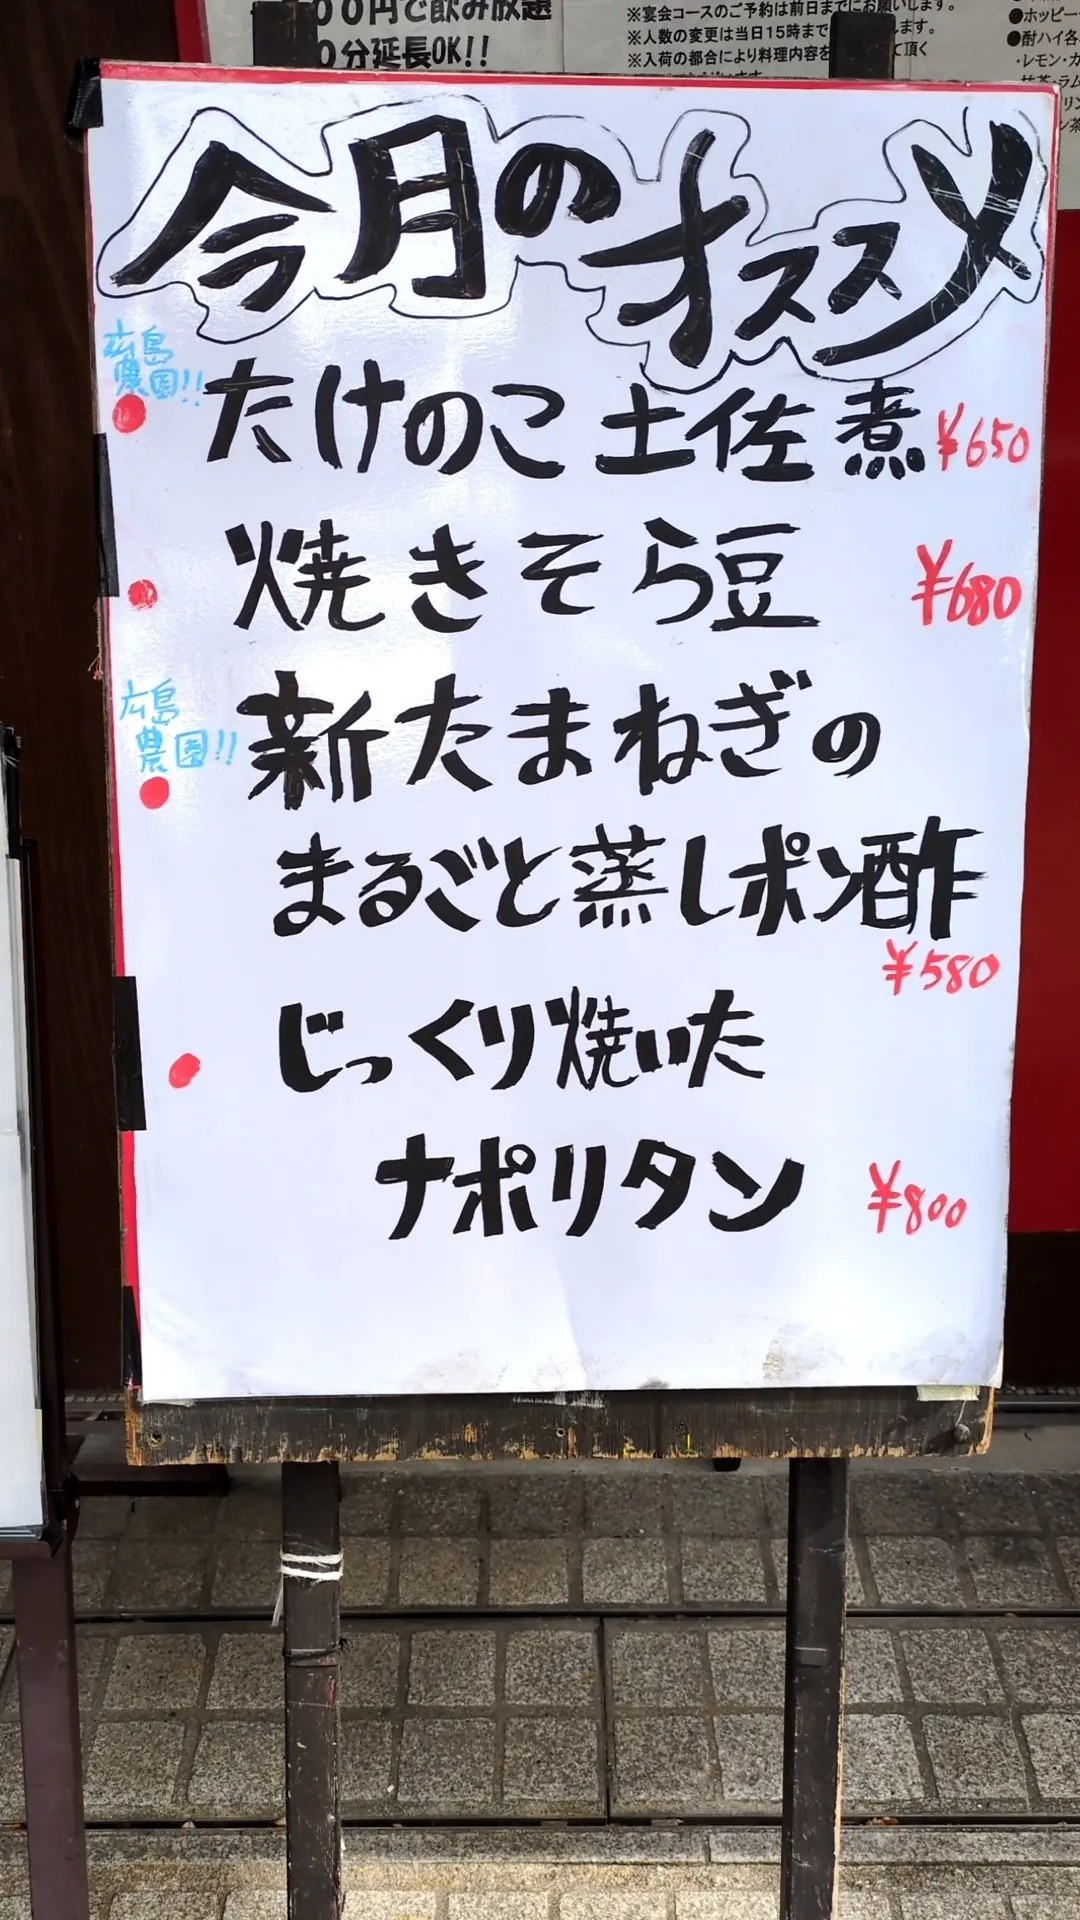 ００円で飲み放題
０分延長OK!!
※宴会コースのご予約は前日までにお願いします。
※人数の変更は当日15時まで
※入荷の都合により料理内容を
●ホッピー
●酎ハイ各
・レモン・カ
今月のオススメ
広島
農園!!
たけのこ土佐煮 ¥650
焼きそら豆 ¥680
広島
農園!!
新たまねぎの
まるごと蒸しポン酢
¥580
じっくり焼いた
ナポリタン ¥800